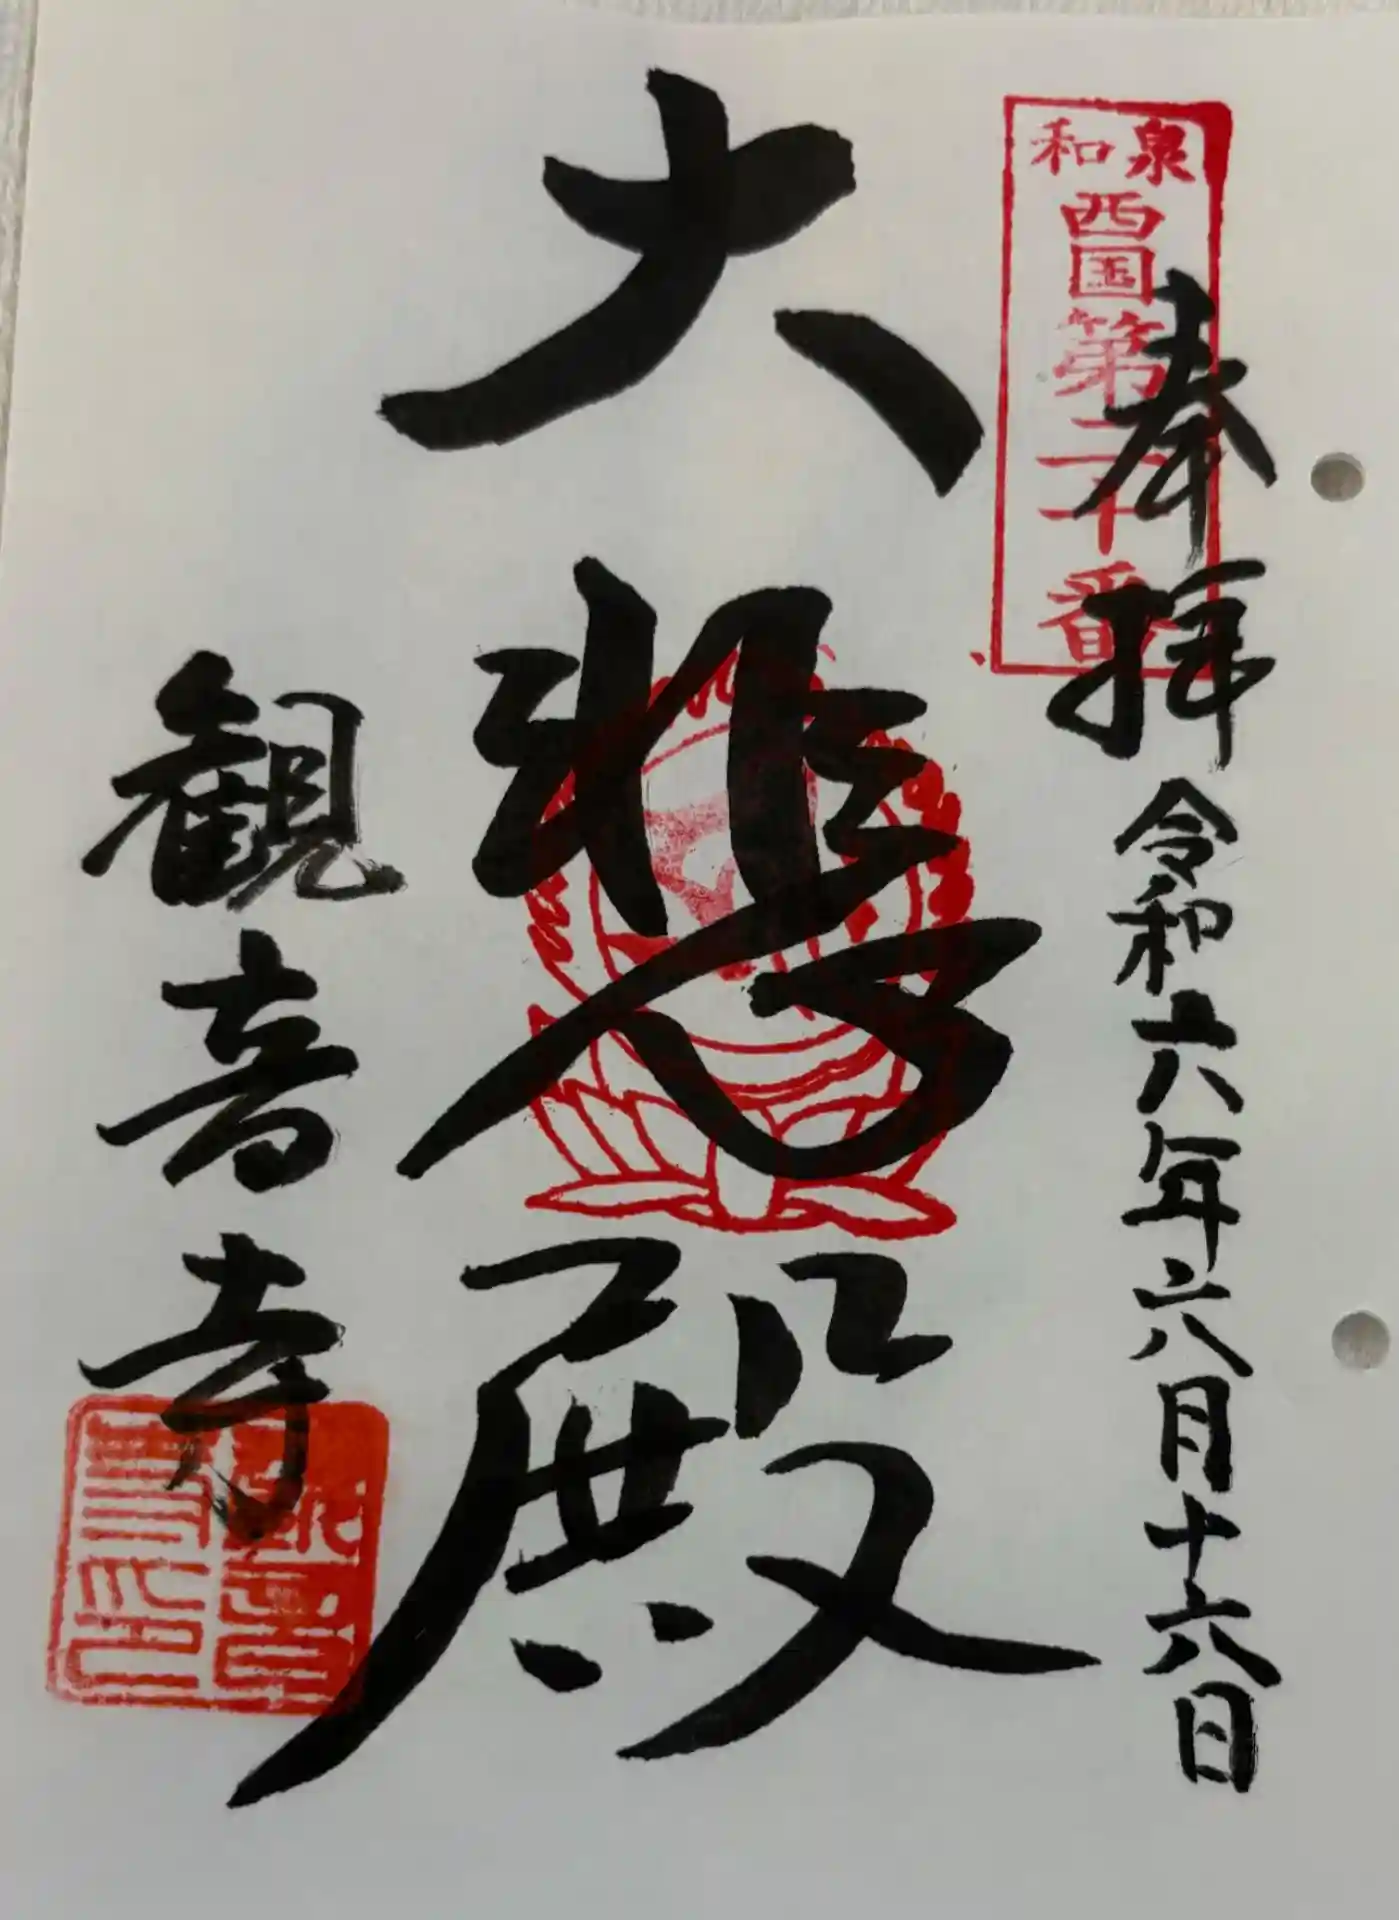 和泉
西国第二十番
奉拝 令和六年六月十六日
大悲殿
観音寺
観音
寺印